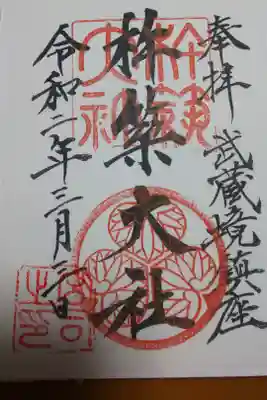 奉拝
武蔵境鎮座
杵築大社
令和二年三月二日
杵築大社